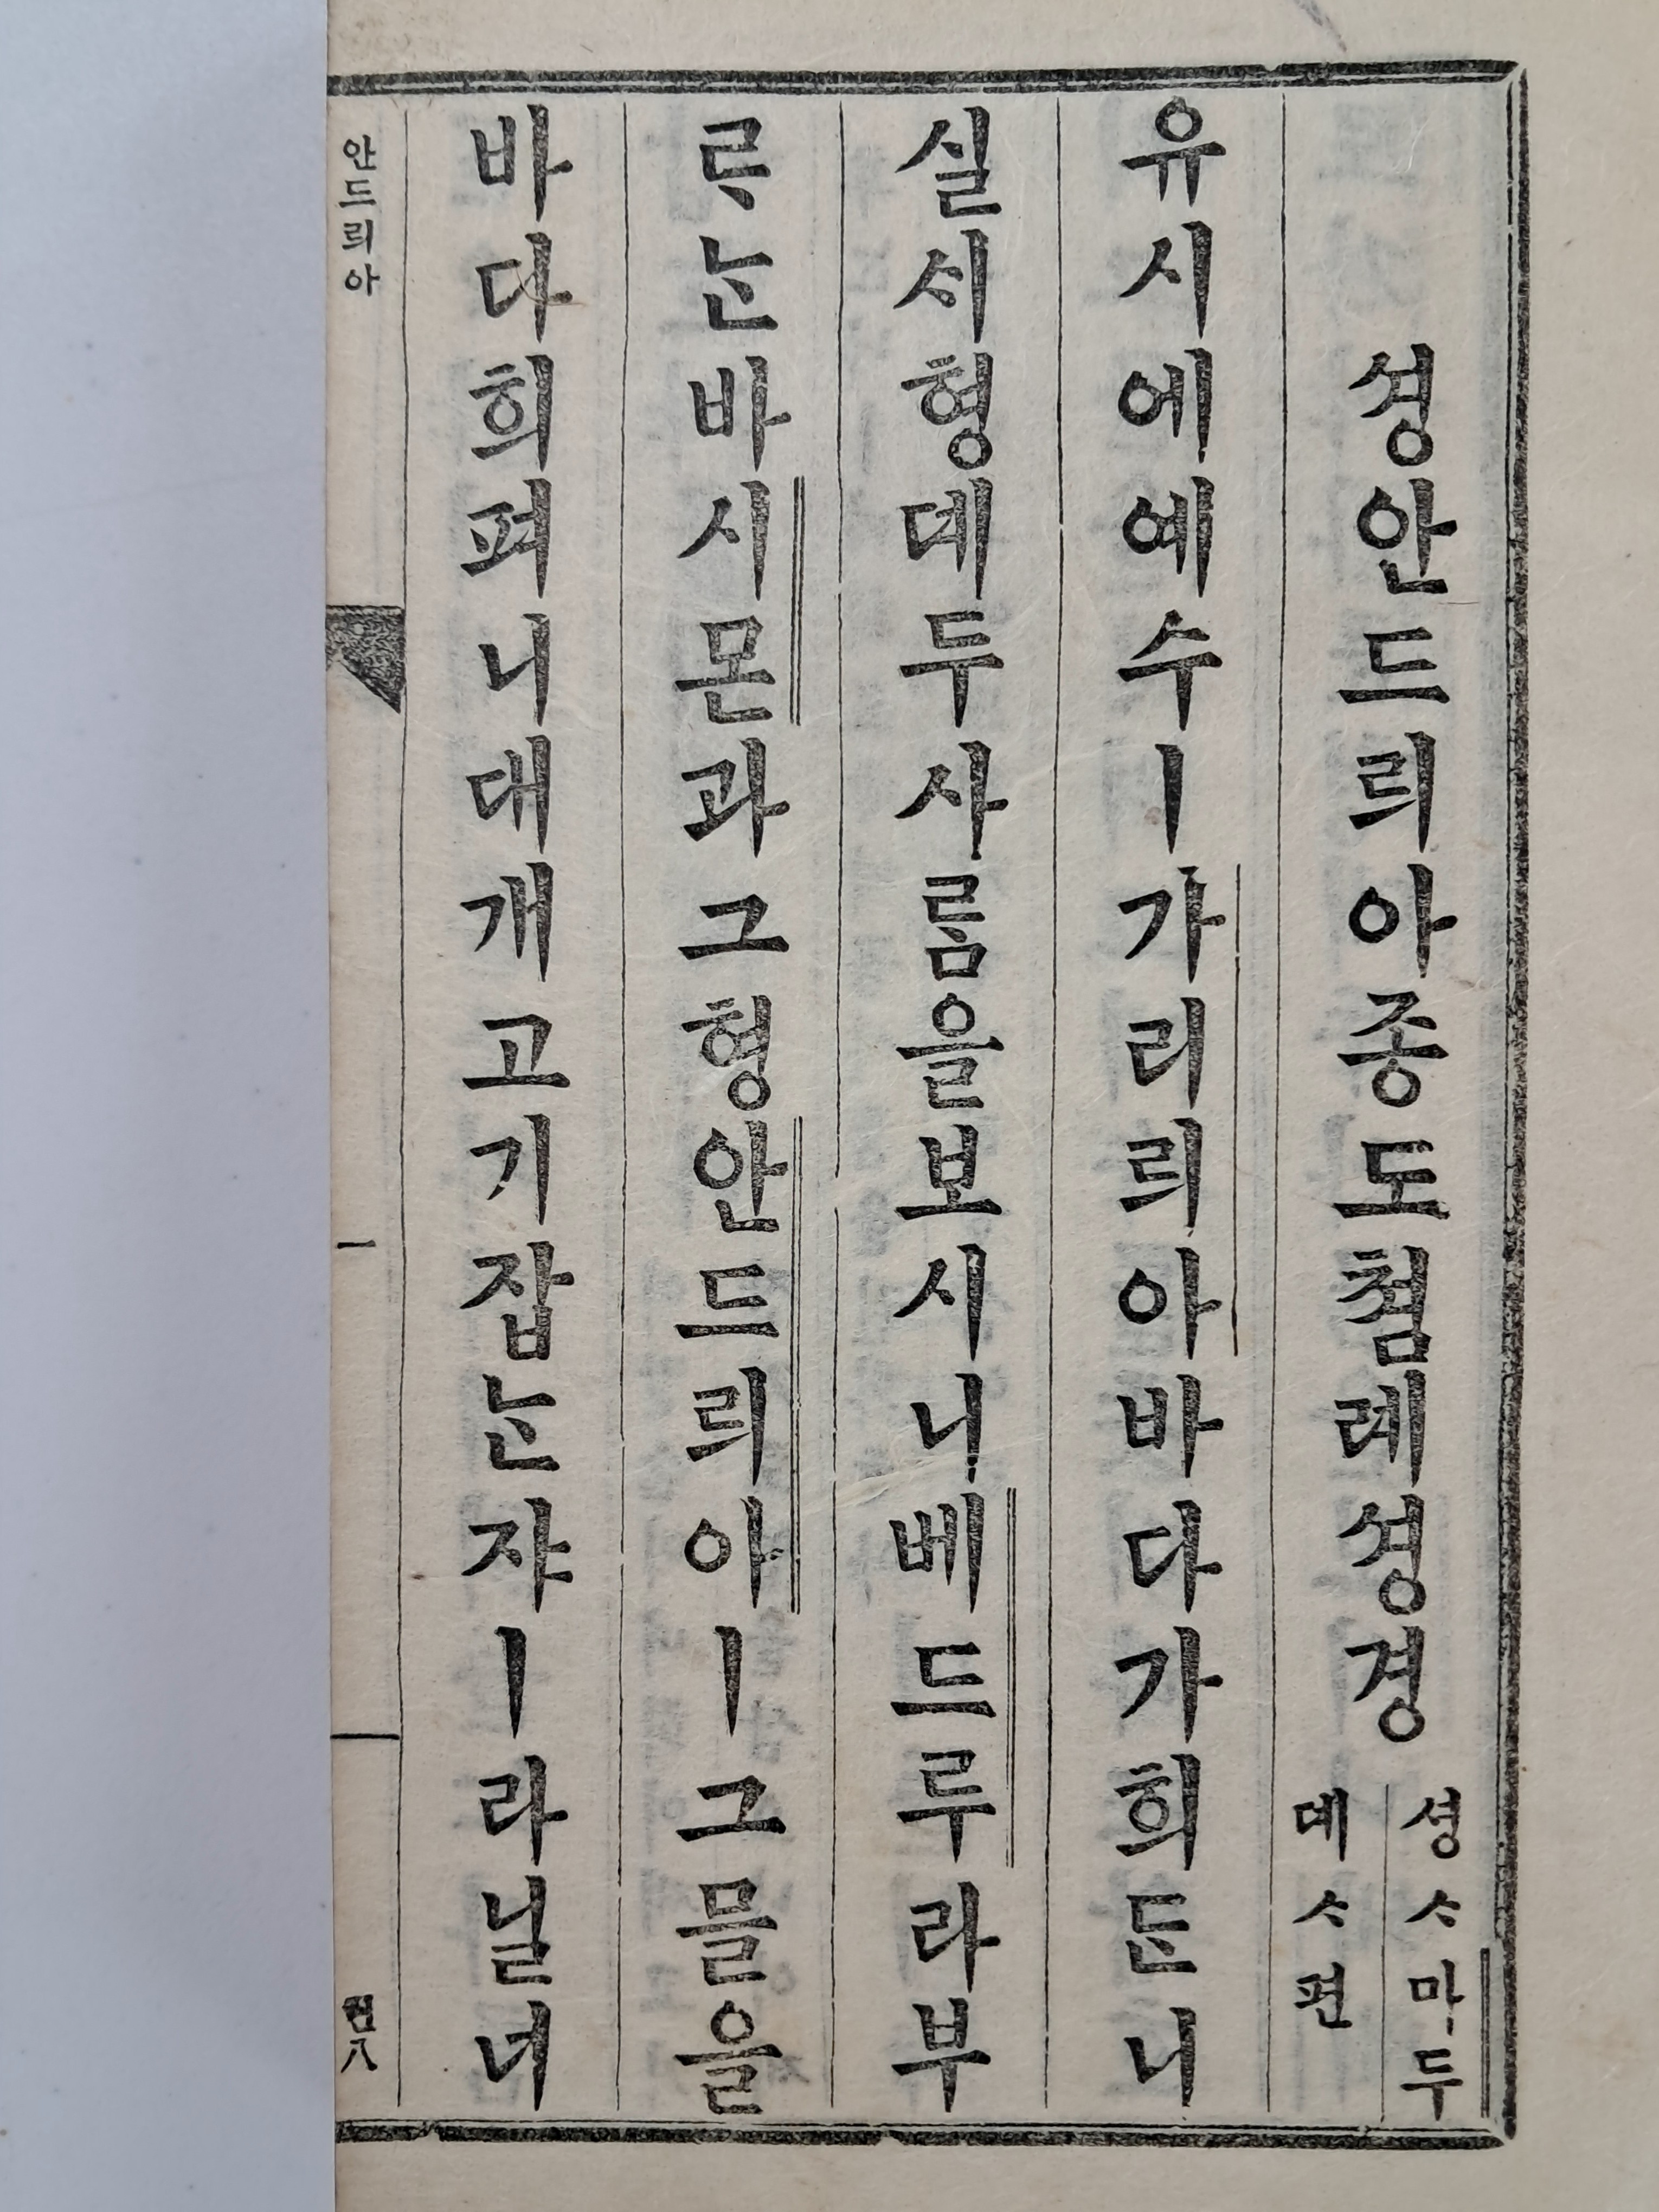 셩안드릐아종도쳠례셩경
셩ᄉᆞ마두
뎨ᄉᆞ편
유시에예수ㅣ가리릐아바다가희ᄃᆞᆫ니
실ᄉᆡ형뎨두사ᄅᆞᆷ을보시니베드루라부
ᄅᆞᄂᆞᆫ바시몬과그형안드릐아ㅣ그믈을
바다희펴니대개고기잡ᄂᆞᆫ쟈ㅣ라닐너
안드릐아
一
쳠八